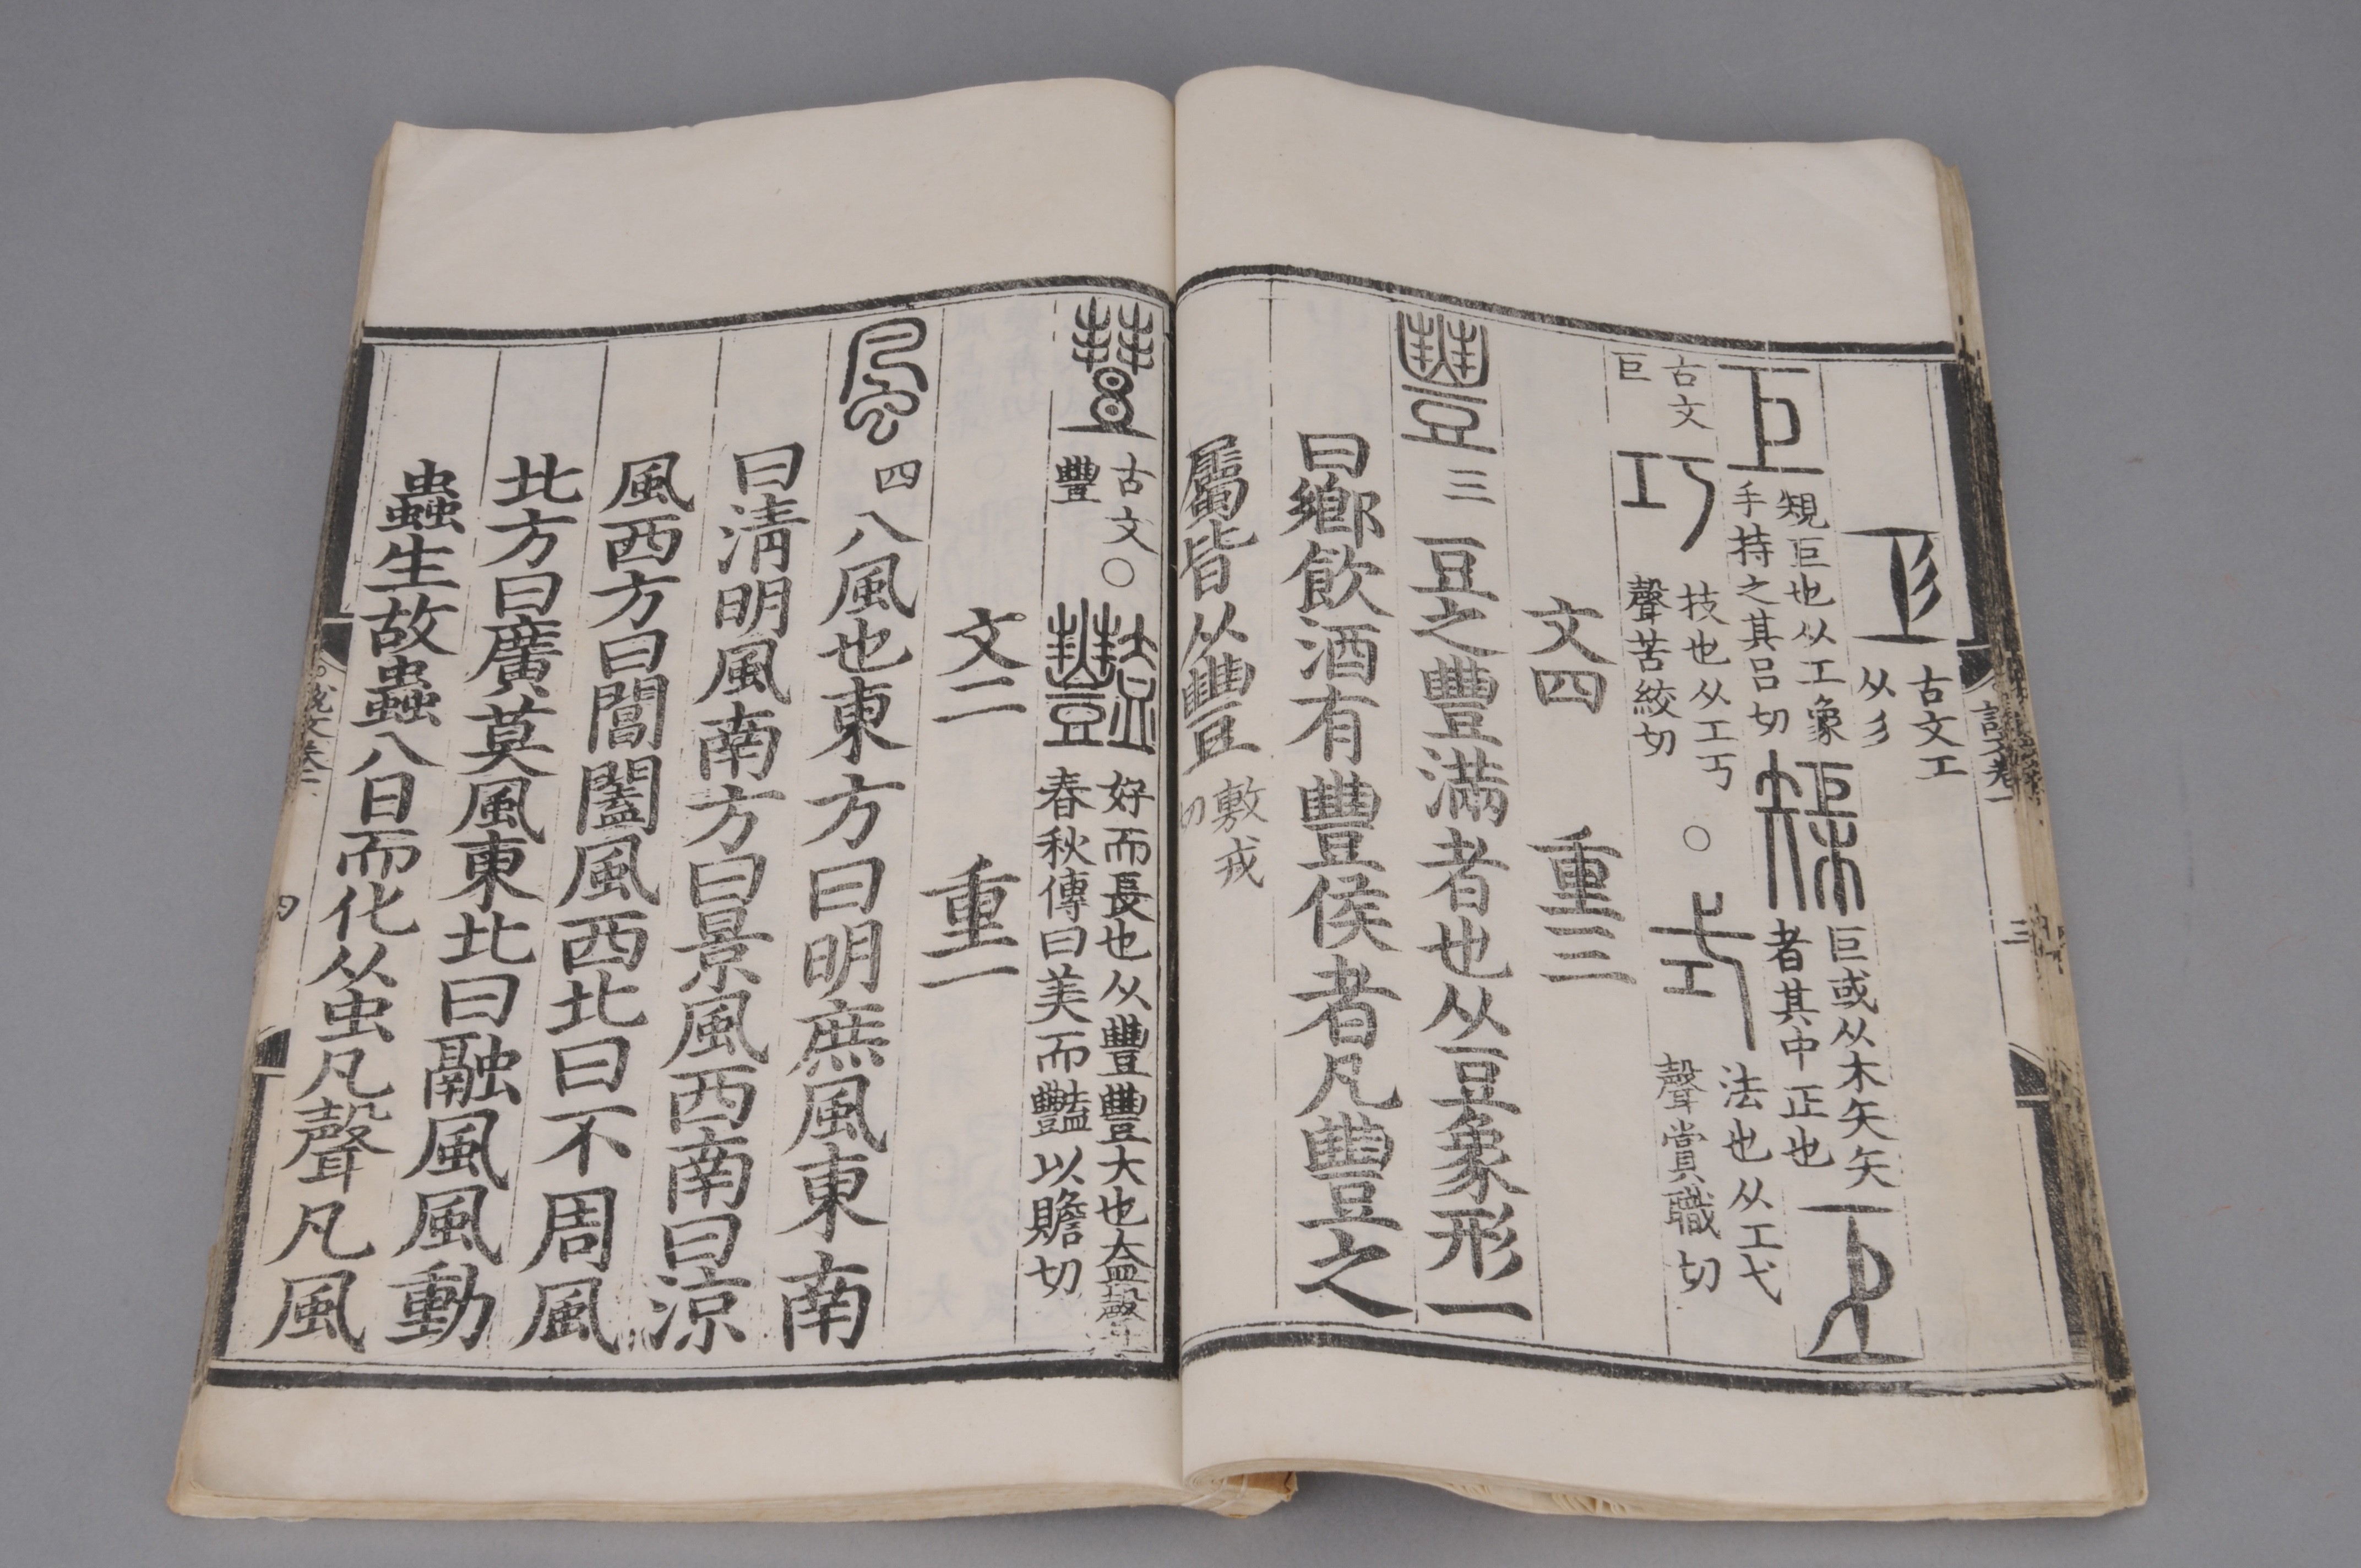 古文工从彡
巨 規巨也从工象手持之其呂切 榘 巨或从木矢矢者其中正也
古文巨 巧 技也从工丂聲苦絞切 ○ 式 法也从工弋聲賞職切
文四 重三
豐 三 豆之豐滿者也从豆象形一
曰鄉飲酒有豐侯者凡豐之
屬皆从豐敷戎切
古文豐 ○ 豔 好而長也从豐豐大也盇聲春秋傳曰美而豔以贍切
文二 重一
風 四 八風也東方曰明庶風東南
曰清明風南方曰景風西南曰涼
風西方曰閶闔風西北曰不周風
北方曰廣莫風東北曰融風風動
蟲生故蟲八日而化从虫凡聲凡風